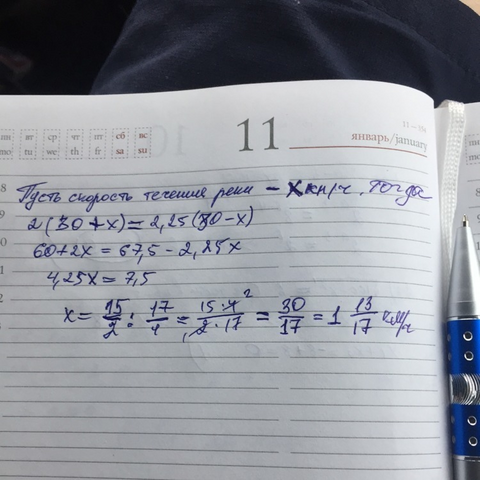 пн вт ср чт пт сб вс
mo tu we th fr sa su
11
11 – 354
январь/january
8
9
Пусть скорость течения реки – x км/ч, тогда
2(30+x)=2,25(30-x)
60+2x = 67,5 - 2,25x
4,25x = 7,5
x = 15/2 : 17/4 = 15·4 2/2·17 = 30/17 = 1 13/17 км/ч